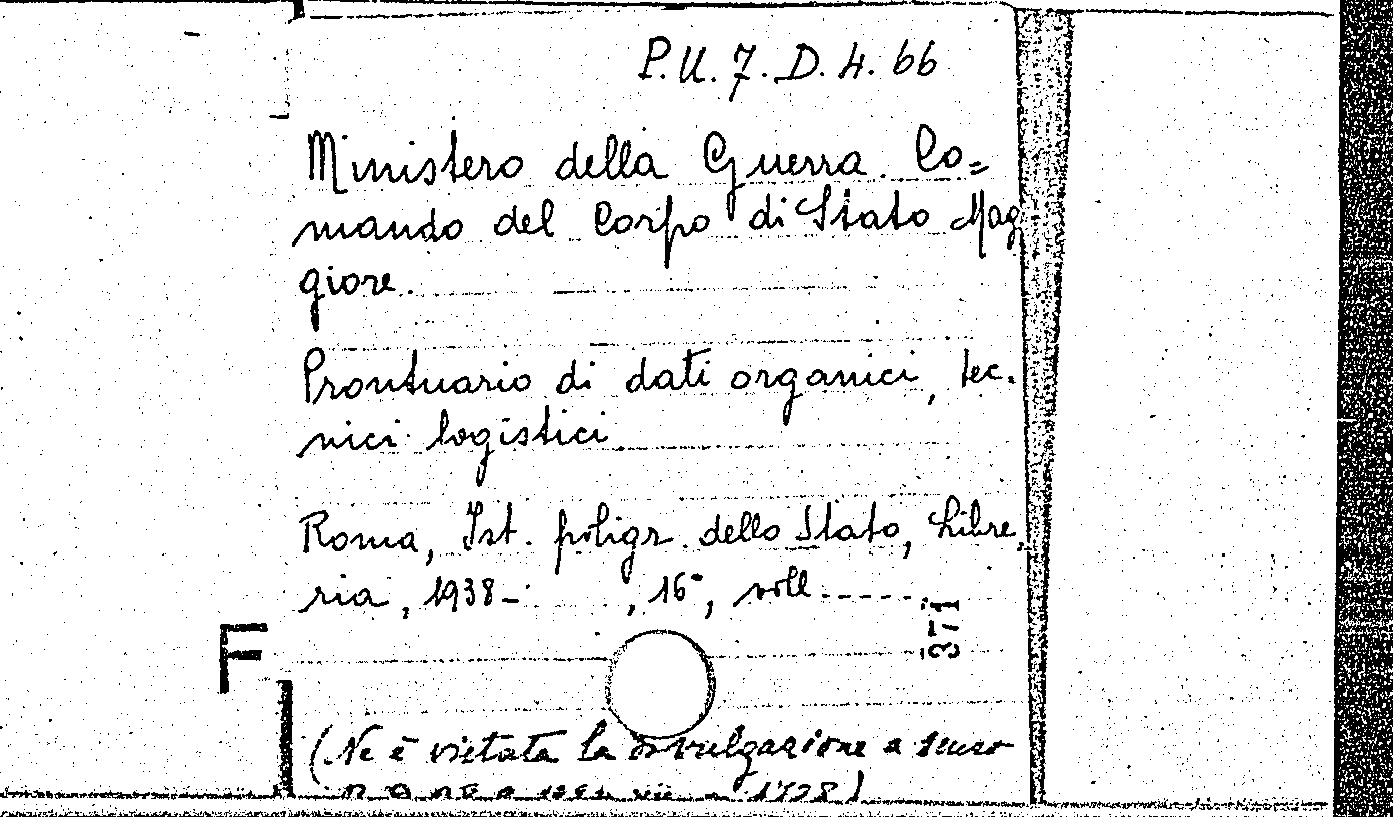 P.U.7.D.4.66
Ministero della Guerra. Co=
mando del Corpo di Stato Mag
giore.
Prontuario di dati organici, tec.
nici logistici
Roma, Ist. poligr. dello Stato, Libre,
ria, 1938- , 16°, voll
371
F
(Ne è vietata la divulgazione a senso